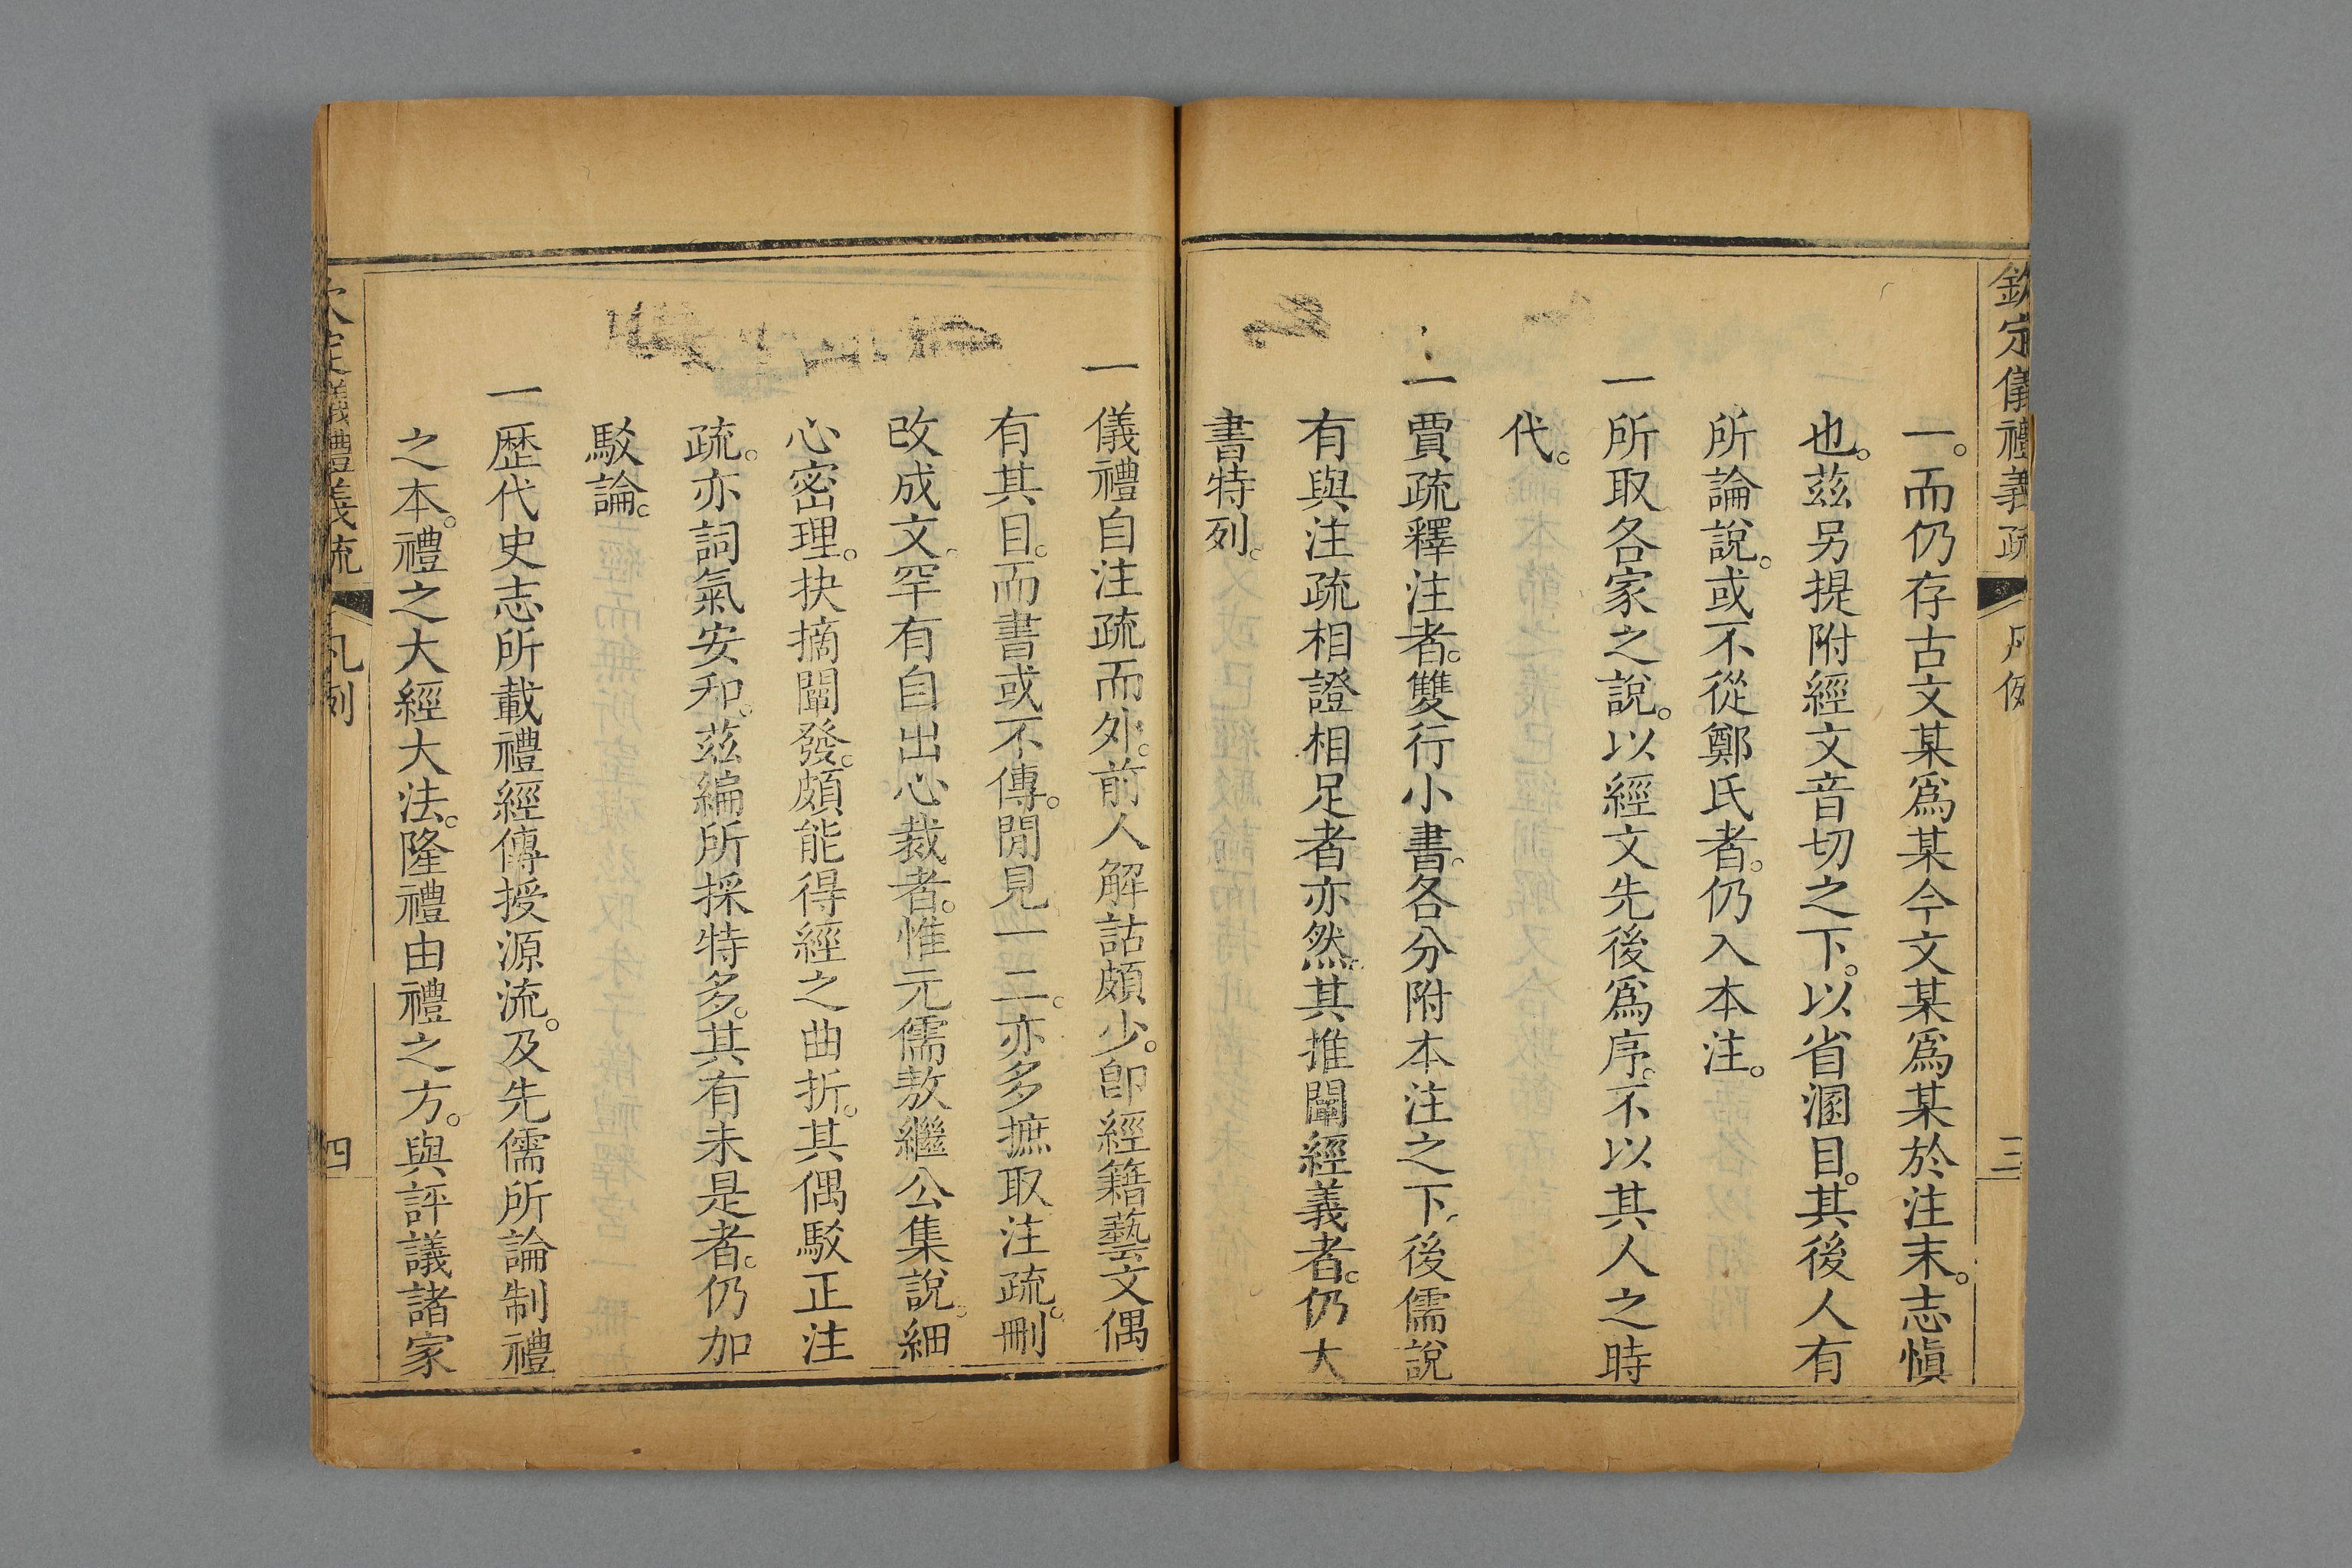 欽定儀禮義疏 凡例 三
一。而仍存古文某爲某今文某爲某於注末。志愼
也。茲另提附經文音切之下。以省溷目。其後人有
所論說。或不從鄭氏者。仍入本注。
一所取各家之說。以經文先後爲序。不以其人之時
代。
一賈疏釋注者。雙行小書。各分附本注之下。後儒說
有與注疏相證相足者亦然。其推闡經義者。仍大
書特列。
一儀禮自注疏而外。前人解詁頗少。卽經籍藝文偶
有其目。而書或不傳。閒見一二。亦多摭取注疏。刪
改成文。罕有自出心裁者。惟元儒敖繼公集說。細
心密理。抉摘闡發。頗能得經之曲折。其偶駁正注
疏。亦詞氣安和。茲編所採特多。其有未是者。仍加
駁論。
一歷代史志所載禮經傳授源流。及先儒所論制禮
之本。禮之大經大法。隆禮由禮之方。與評議諸家
欽定儀禮義疏 凡例 四